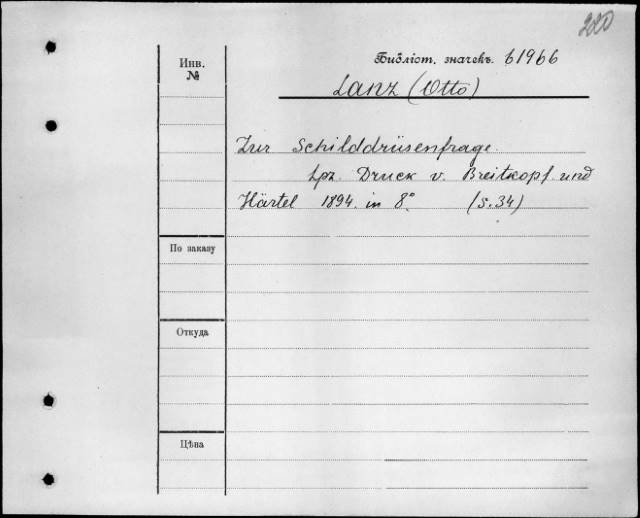 280
Инв.
№
Библіот. значекъ б1966
Lanz (Otto)
Zur Schilddrüsenfrage.
Lpz. Druck v. Breitkopf und
Härtel 1894. in 8° (S. 34)
По заказу
Откуда
Цѣна